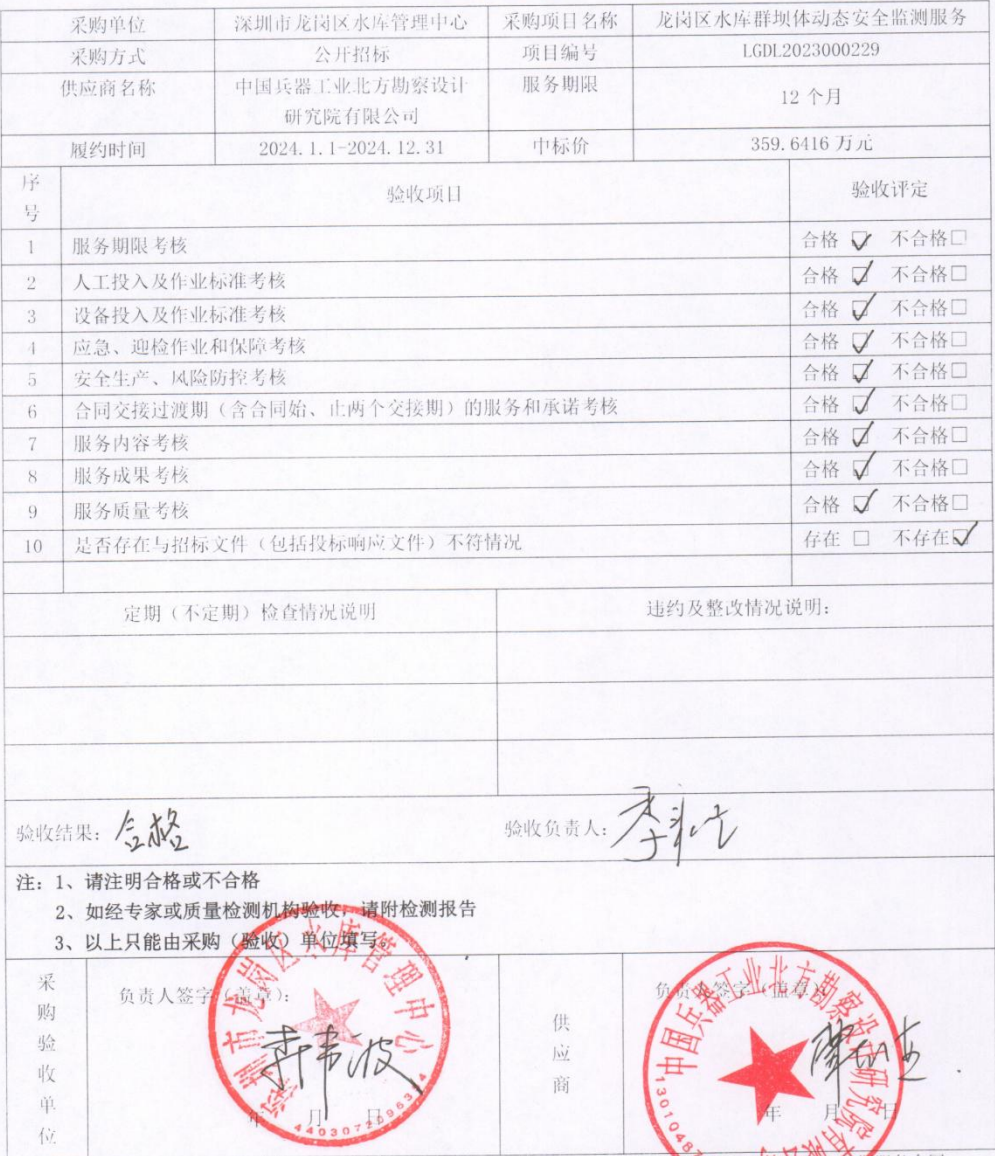 采购单位 深圳市龙岗区水库管理中心 采购项目名称 龙岗区水库群坝体动态安全监测服务
采购方式 公开招标 项目编号 LGDL2023000229
供应商名称 中国兵器工业北方勘察设计 服务期限 12个月
研究院有限公司
履约时间 2024.1.1-2024.12.31 中标价 359.6416万元
序号 验收项目 验收评定
1 服务期限考核 合格 ☑ 不合格□
2 人工投入及作业标准考核 合格 ☑ 不合格□
3 设备投入及作业标准考核 合格 ☑ 不合格□
4 应急、迎检作业和保障考核 合格 ☑ 不合格□
5 安全生产、风险防控考核 合格 ☑ 不合格□
6 合同交接过渡期（含合同始、止两个交接期）的服务和承诺考核 合格 ☑ 不合格□
7 服务内容考核 合格 ☑ 不合格□
8 服务成果考核 合格 ☑ 不合格□
9 服务质量考核 合格 ☑ 不合格□
10 是否存在与招标文件（包括投标响应文件）不符情况 存在 □ 不存在☑
定期（不定期）检查情况说明 违约及整改情况说明：
验收结果：合格 验收负责人：
注：1、请注明合格或不合格
2、如经专家或质量检测机构验收，请附检测报告
3、以上只能由采购（验收）单位填写。
采购验收单位 负责人签字（盖章）： 供应商 负责人签字（盖章）
年 月 日 年 月 日
深圳市龙岗区水库管理中心
中国兵器工业北方勘察设计研究院有限